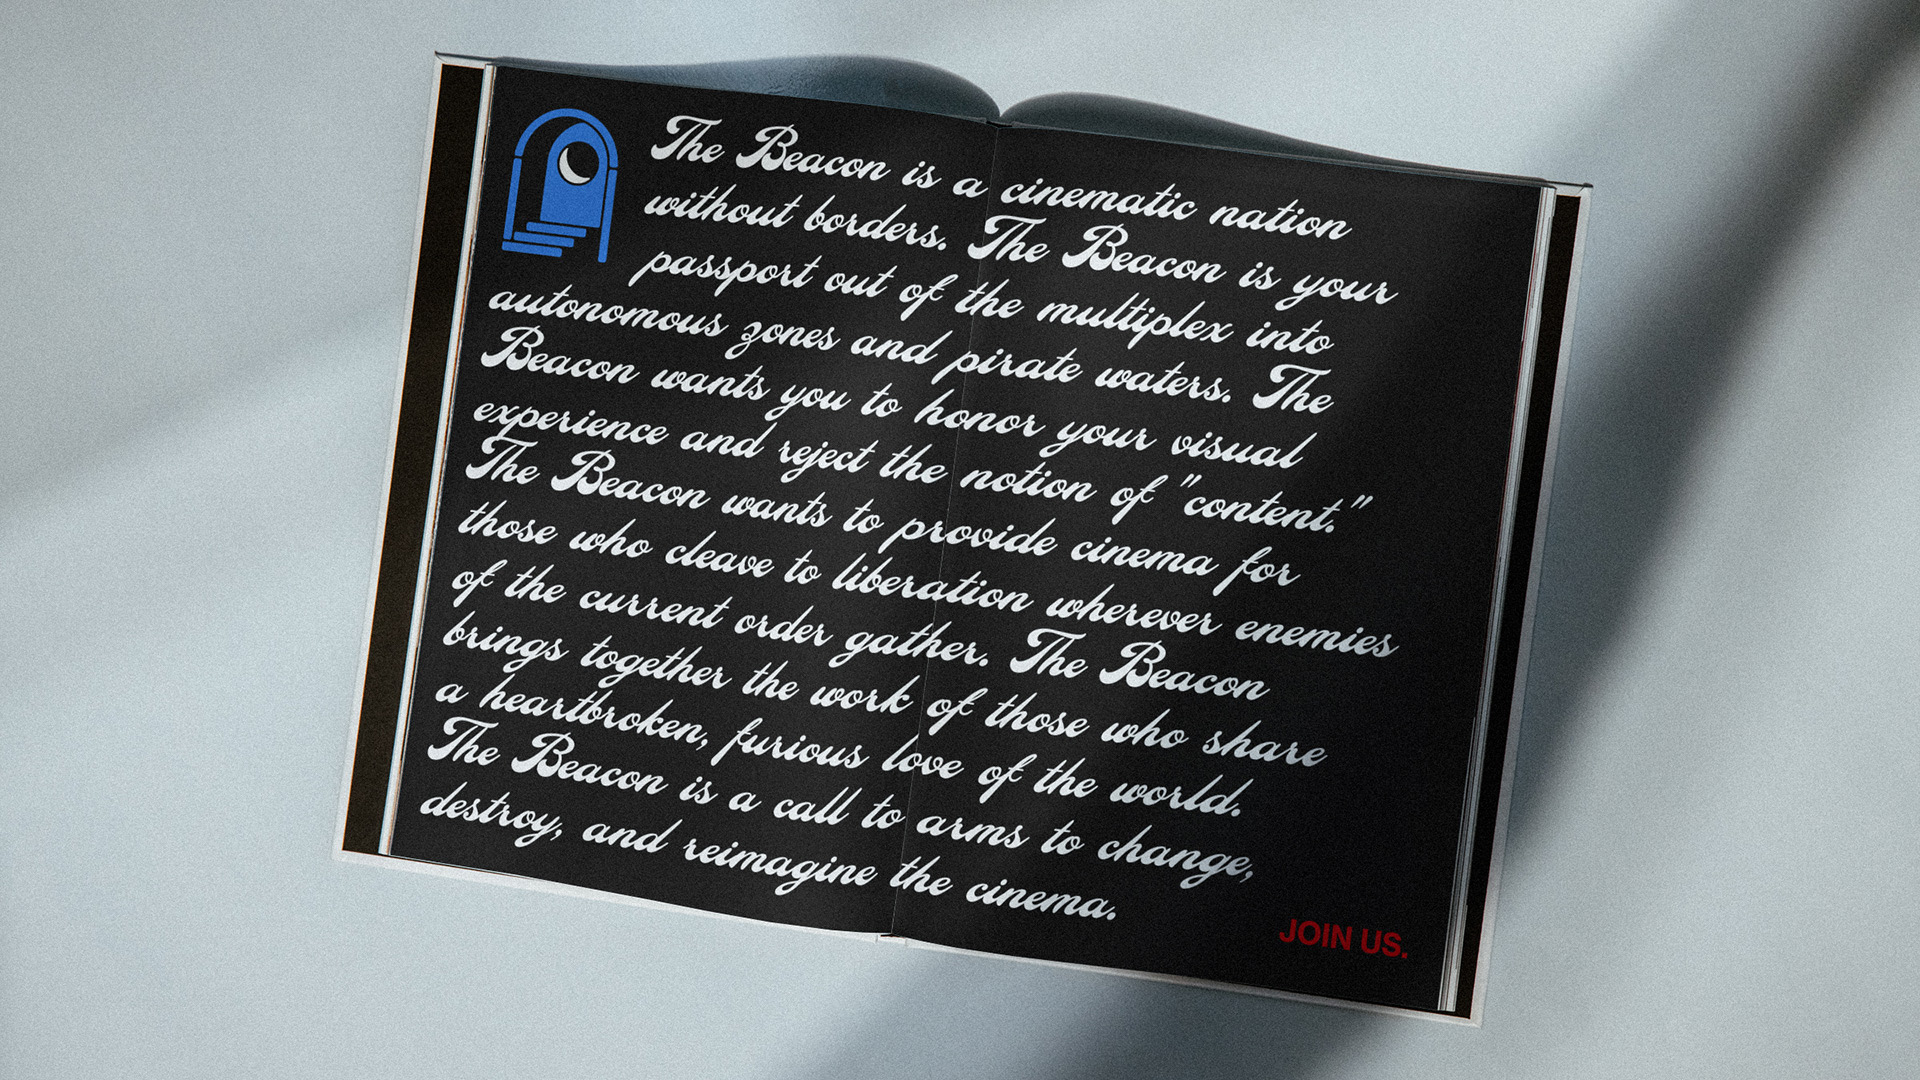 The Beacon is a cinematic nation
without borders. The Beacon is your
passport out of the multiplex into
autonomous zones and pirate waters. The
Beacon wants you to honor your visual
experience and reject the notion of "content."
The Beacon wants to provide cinema for
those who cleave to liberation wherever enemies
of the current order gather. The Beacon
brings together the work of those who share
a heartbroken, furious love of the world.
The Beacon is a call to arms to change,
destroy, and reimagine the cinema.
JOIN US.